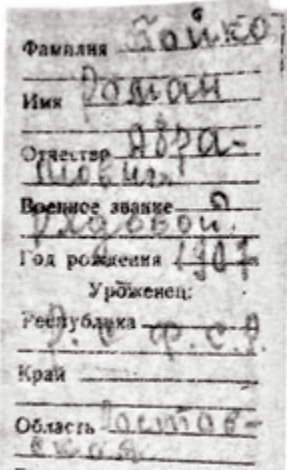 Фамилия Бойко
Имя Роман
Отчество Абра-
мович
Военное звание
Рядовой
Год рождения 1907
Уроженец:
Республика
Р.С.Ф.С.Р.
Край
Область Ростов-
ская